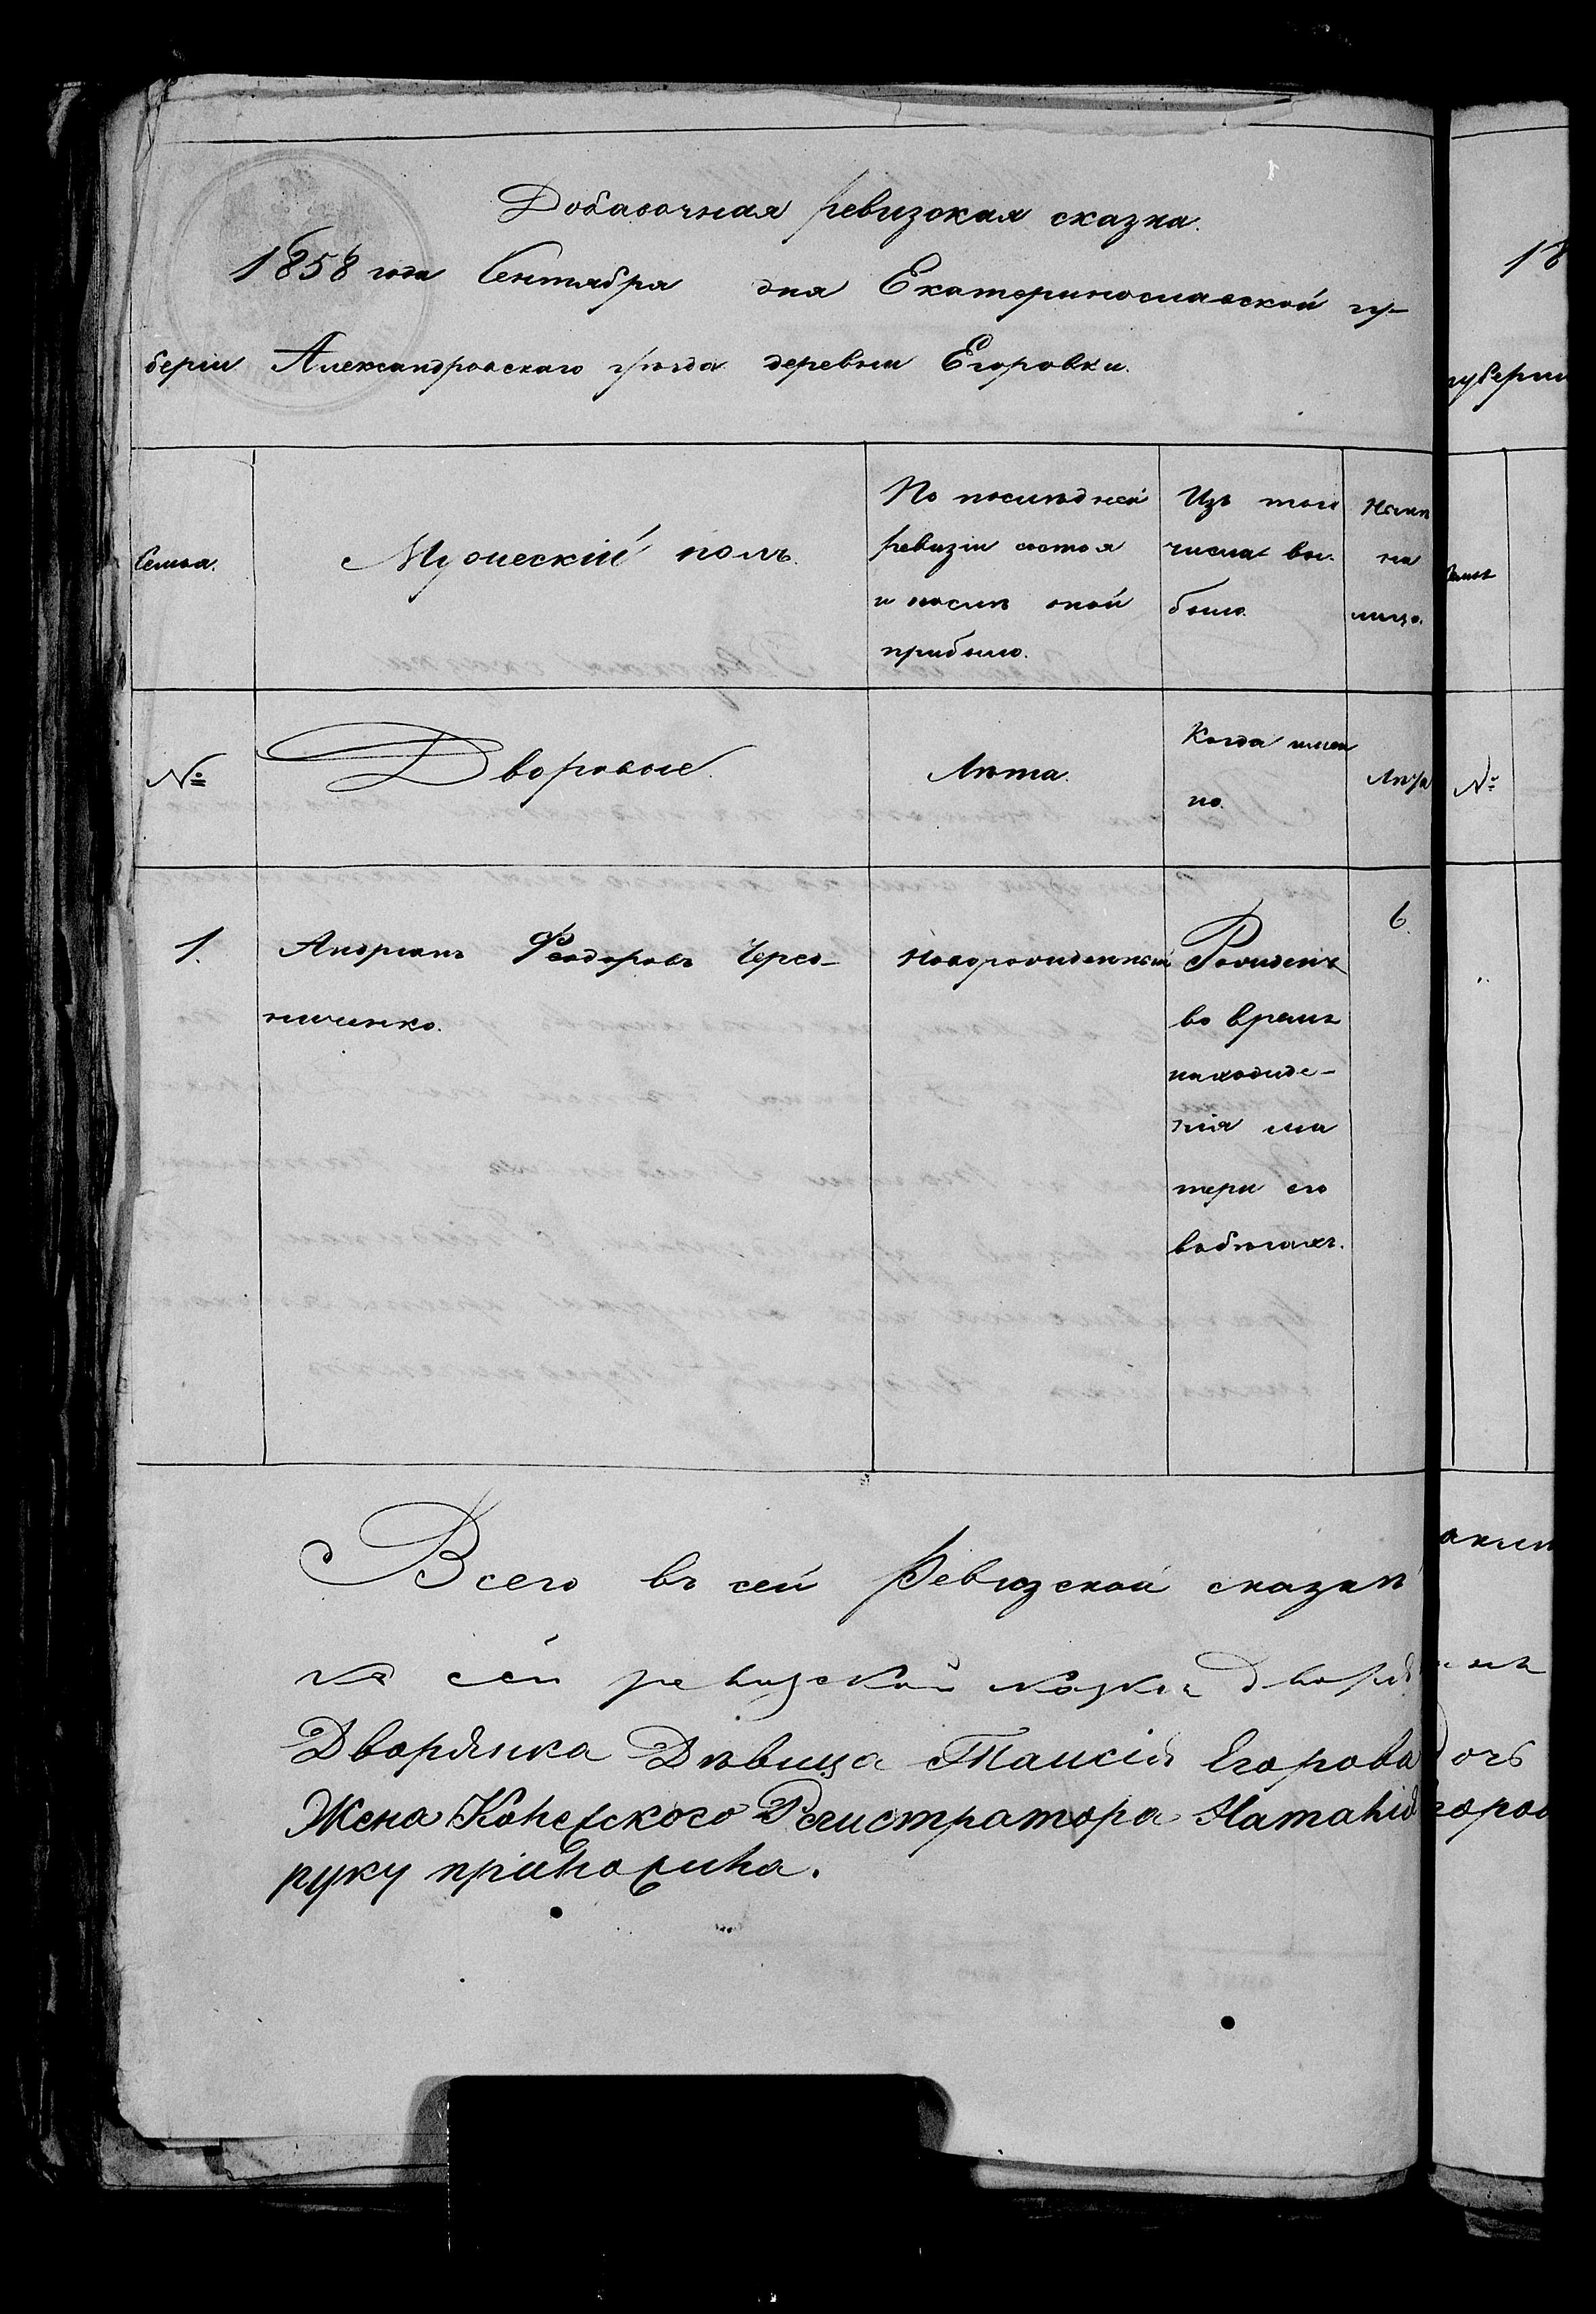 Добавочная ревизская сказка.
1858 года Сентября дня Екатеринославской гу-
берніи Александровскаго уѣзда деревни Егоровки.
Семья.
Мужескій полъ.
По послѣдней
ревизіи состоя
и послѣ оной
прибыло.
Изъ того
числа вы-
было.
Нынѣ
на
лицо.
№
Дворовые.
Лѣта.
Когда имен
но.
Лѣта
1.
Андріанъ Феодоровъ Черед-
ниченко.
Новорожденный
Рожденъ
во время
нахожде-
нія ма
тери его
въ бѣгахъ.
6.
Всего въ сей Ревизской сказкѣ
къ сей ревизской сказки
Дворянка Дѣвица Таисія Егорова
Жена Колежского Регистратора Наталія
руку приложила.
18
губерніи
№